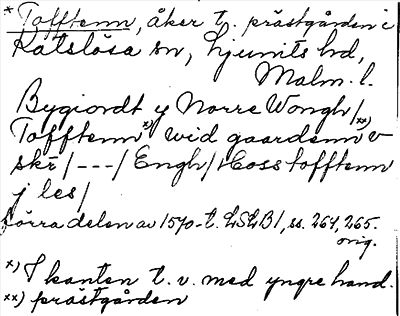 * Tofftenn, åker t. prästgården i
Katslösa sn, Ljunits hd,
Malm. l.
Bygiordt y Norre Wongh/
Tofftenn x) wid gaardenn xx) v
skr/---/Engh/Hoss tofftenn
j les/
södra delen av 1570-t. LSLB1, ss. 264, 265.
orig.
x) I kanten t. v. med yngre hand.
xx) prästgården